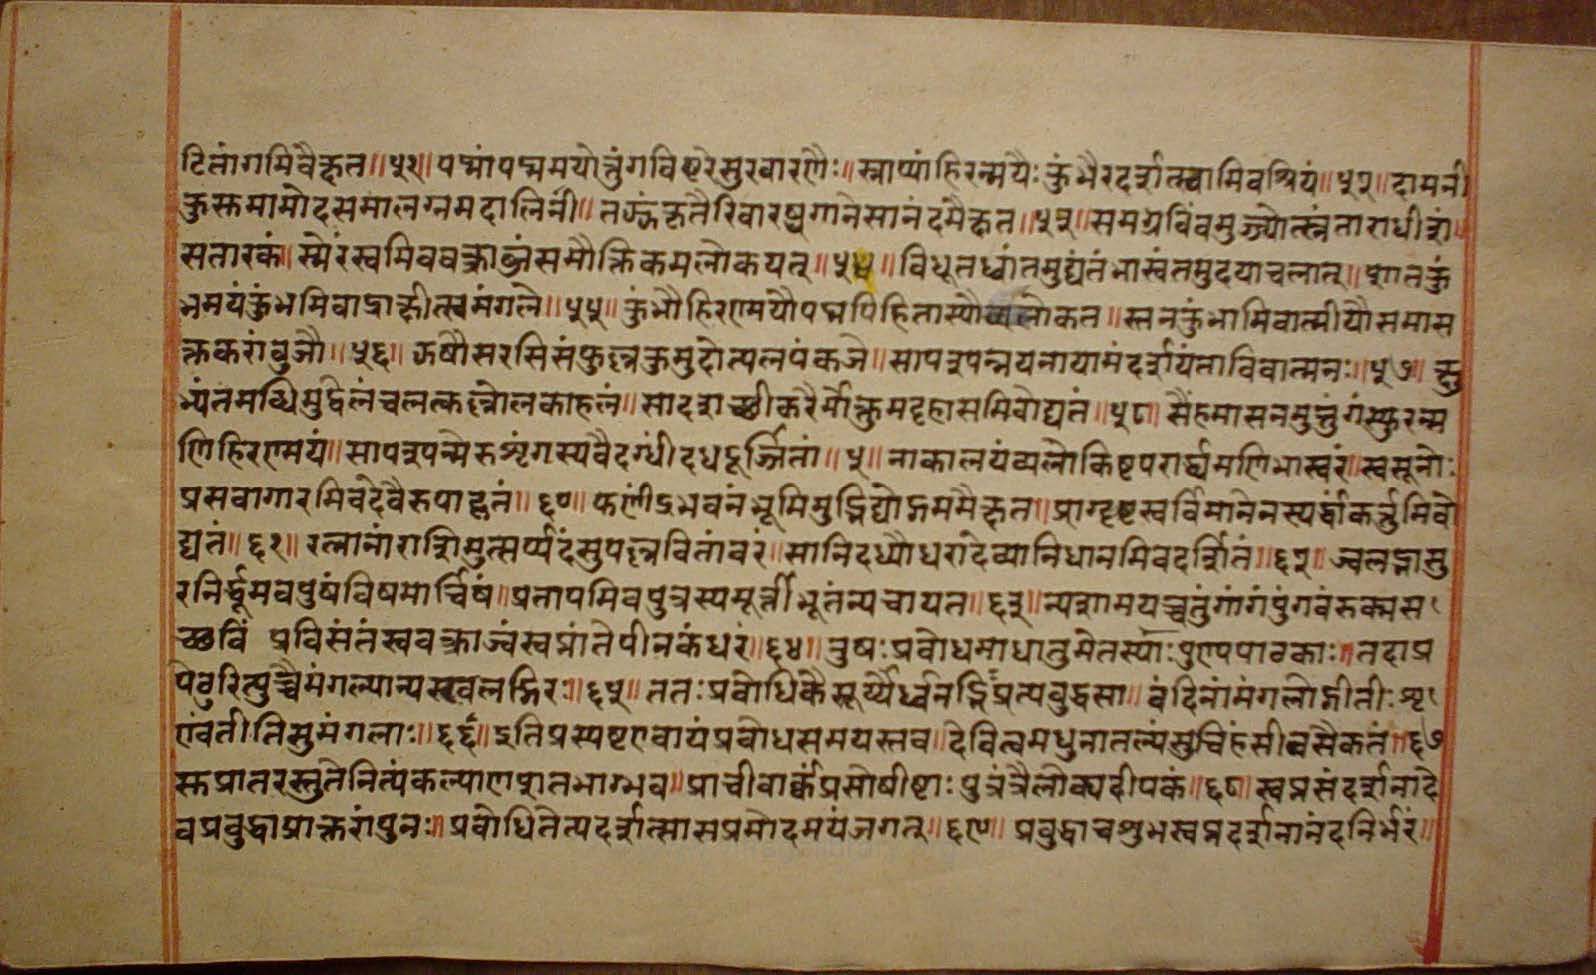 टितांगमिवैक्षत॥५१॥पद्मांपद्ममयोत्तुंगविष्टरेसुरवारणैः॥स्नाप्यांहिरन्मयैःकुंभैरदर्शत्स्वामिवश्रियं॥५२॥दामनी
कुस्तमामोदसमालग्नमदालिनी॥तज्झंकृतैरिवारब्धगानेसानंदमैक्षत॥५३॥समग्रविंवमुज्ज्योत्स्नंताराधीशं॥
सतारकं॥स्मेरंस्वमिववक्त्राब्जंसमौक्तिकमलोकयत्॥५४॥विधूतध्वांतमुद्यंतंभास्वंतमुदयाचलात्॥शातकुं
भमयंकुंभमिवाद्राक्षीत्स्वमंगले॥५५॥कुंभौहिरण्मयौपद्मपिहितास्यौव्यलोकत॥स्तनकुंभामिवात्मीयौसमास
क्तकरांवुजौ॥५६॥झषौसरसिसंफुल्लकुमुदोत्पलपंकजे॥सापश्पन्नयनायामंदर्शयंताविवात्मनः॥५७॥क्षु
भ्यंतमब्धिमुद्वेलंचलत्कल्लोलकाहलं॥सादशच्छीकरैर्मोक्तुमदृहासमिवोद्यतं॥५८॥सैंहमासनमुत्तुंगंस्फुरन्म
णिहिरण्मयं॥सापश्पन्मेरुशृंगस्यवैदग्धींदधदूर्जितां॥५॥नाकालयंव्यलोकिष्टपरार्द्ध्यमणिभास्वरं॥स्वसूनोः
प्रसवागारमिवदेवैरुपाहृतं॥६०॥फणींद्रभवनंभूमिमुद्भिद्योद्गममैक्षत॥प्राग्दृष्टस्वर्विमानेनस्पर्द्धांकर्त्तुमिवो
द्यतं॥६१॥रत्नानांराशिमुत्सर्प्पदंसुपल्लवितांवरं॥सानिदध्यौधरादेव्यानिधानमिवदर्शितं॥६२॥ज्वलद्भासु
रनिर्द्धूमवपुषंविषमार्चिषं॥प्रतापमिवपुत्रस्यमूर्त्तीभूतंन्यचायत॥६३॥न्यशामयच्चतुंगांगंपुंगवंरुक्मस
च्छविं प्रविसंतंस्ववक्त्राज्वंस्वप्नांतेपीनकंधरं॥६४॥त्रुषःप्रवोधमाधातुमेतस्पाःपुण्पपाठकाः॥तदाप्र
पेठुरित्पुच्चैमंगल्यान्यस्खलद्गिरः॥६५॥ततःप्रवोधिकैस्तूर्य्यैर्ध्वनद्भिःप्रत्यवुद्धसा॥वंदिनांमंगलोद्गीतीःशृ
ण्वंतीतिसुमंगलाः॥६६॥इतिप्रस्यष्टएवायंप्रवोधसमयस्तव॥देवित्वमधुनातल्पंसुचिहंसीवसैकतं॥६७
स्तप्रातरस्तुतेनित्यंकल्याणशतभाग्भव॥प्राचीवार्क्कंप्रसोषीष्टाःपुत्रंत्रैलोक्यदीपकं॥६८॥स्वप्नसंदर्शनादे
वप्रवुद्धाप्राक्तरांपुनः॥प्रवोधितेत्यदर्शत्सासप्रमोदमयंजगत्॥६९॥प्रवुद्धाचशुभस्वप्नदर्शनानंदनिर्भरं॥